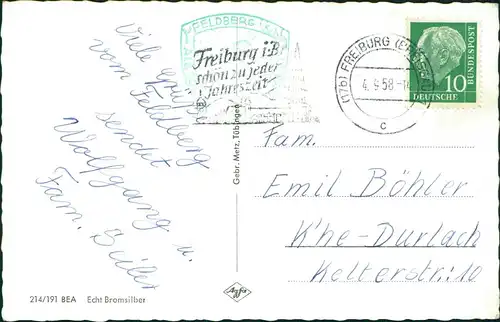 Viele Grüße
vom Feldberg
sendet
Wolfgang u.
Fam.
FELDBERG
Freiburg i. Br
schön zu jeder
Jahreszeit
(17b) FREIBURG
4. 9 58
c
10
DEUTSCHE
BUNDESPOST
Gebr. Metz, Tübingen
Fam.
Emil Böhler
K'he-Durlach
Kelterstr. 10
214/191 BEA Echt Bromsilber
Agfa